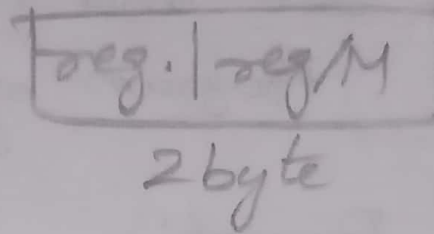 reg. | reg/M
2byte